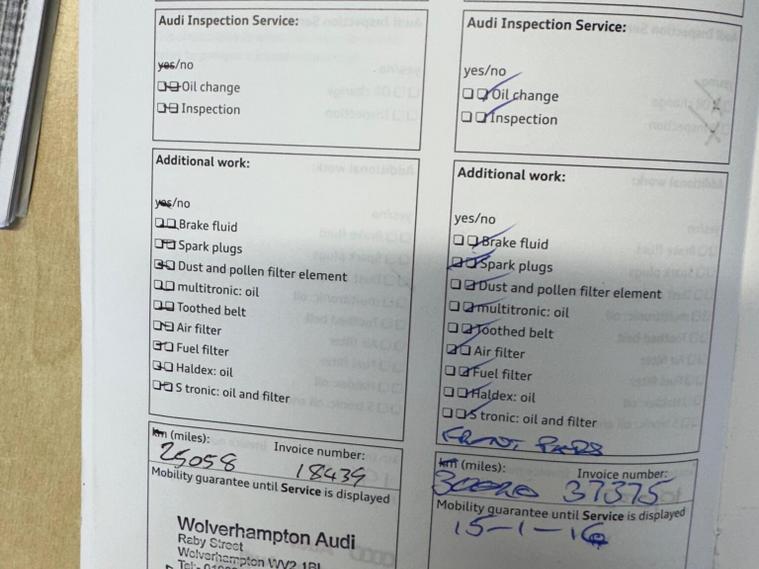 Audi Inspection Service:
yes/no
Oil change
Inspection
Additional work:
yes/no
Brake fluid
Spark plugs
Dust and pollen filter element
multitronic: oil
Toothed belt
Air filter
Fuel filter
Haldex: oil
S tronic: oil and filter
km (miles): Invoice number:
25058 18439
Mobility guarantee until Service is displayed
Wolverhampton Audi
Raby Street
Wolverhampton WV2 1BL
Audi Inspection Service:
yes/no
Oil change
Inspection
Additional work:
yes/no
Brake fluid
Spark plugs
Dust and pollen filter element
multitronic: oil
Toothed belt
Air filter
Fuel filter
Haldex: oil
S tronic: oil and filter
FRONT PADS
km (miles): Invoice number:
37375
Mobility guarantee until Service is displayed
15-1-16